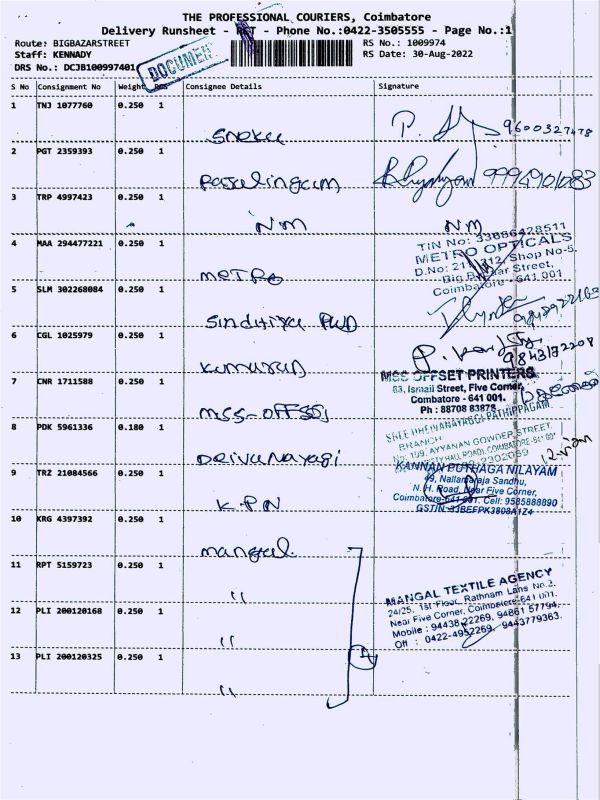 THE PROFESSIONAL COURIERS, Coimbatore
Delivery Runsheet - - Phone No.:0422-3505555 - Page No.:1
Route: BIGBAZARSTREET RS No.: 1009974
Staff: KENNADY RS Date: 30-Aug-2022
DRS No.: DCJB100997401
DOCUMEN
S No Consignment No Weight Pcs Consignee Details Signature
1 TNJ 1077760 0.250 1
Sneku 9600327478
2 PGT 2359393 0.250 1
Rasalingam
3 TRP 4997423 0.250 1
NM NM
TIN No: 33686428511
4 MAA 294477221 0.250 1 METRO OPTICALS
D.No: 211 312, Shop No-5.
Metro Big Bazaar Street,
Coimbatore - 641 001
5 SLM 302268084 0.250 1
Sindhiya PWD
6 CGL 1025979 0.250 1
Kumaran 9843172208
MSS OFFSET PRINTERS
7 CNR 1711588 0.250 1 63, Ismail Street, Five Corner,
Combatore - 641 001.
MSS-OFFSET Ph : 88708 83878
8 PDK 5961336 0.180 1
BRANCH
NO. 109, AYYANAN GOWDER STREET,
Deivanayagi
KANNAN PUTHAGA NILAYAM
9 TRZ 21084566 0.250 1 49, Nallamaraja Sandhu,
N. H. Road, Near Five Corner,
K.P.N Coimbatore-641 001. Cell: 9585888890
GSTIN: 33BEFPK3808A1Z4
10 KRG 4397392 0.250 1
Mangal
11 RPT 5159723 0.250 1
MANGAL TEXTILE AGENCY
" 24/25, 1st Floor, Rathnam Lane No.2,
Near Five Corner, Coimbatore-641 001.
12 PLI 200120168 0.250 1 Mobile : 94438 22269, 94861 57794,
Off : 0422-4952269, 9443779363.
"
13 PLI 200120325 0.250 1
"